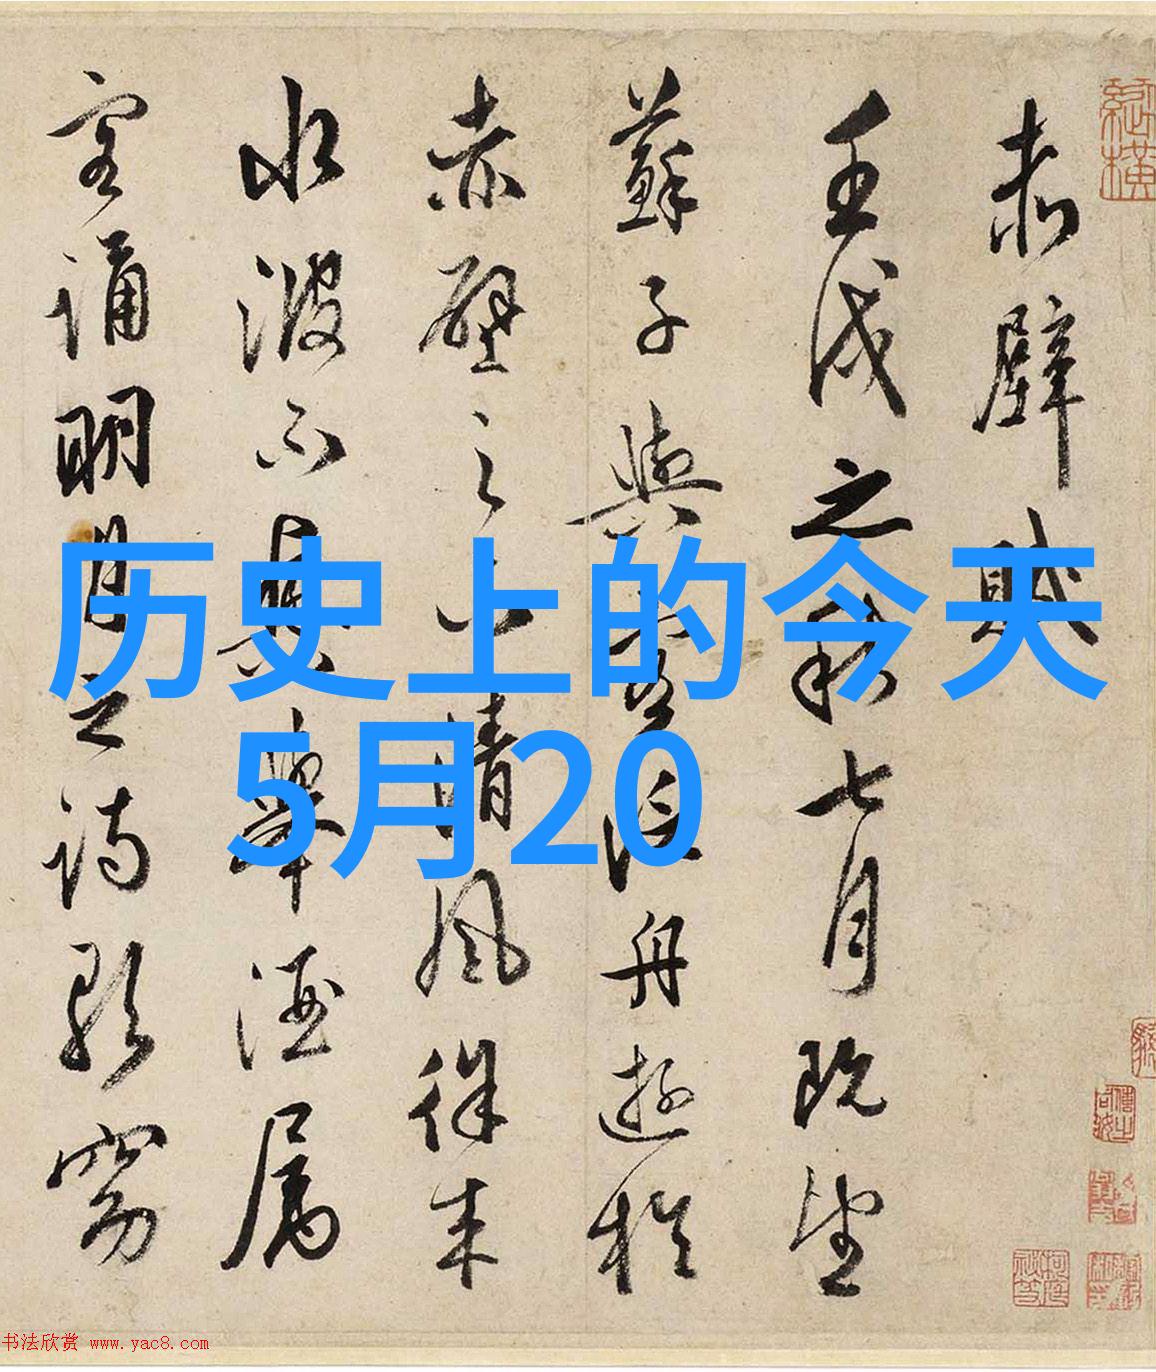 赤壁賦
壬戌之秋七月既望
蘇子與客泛舟遊於
赤壁之下清風徐来
水波不興舉酒属
客誦明月之詩歌窈
历史上的今天
5月20
书法欣赏 www.yac8.com